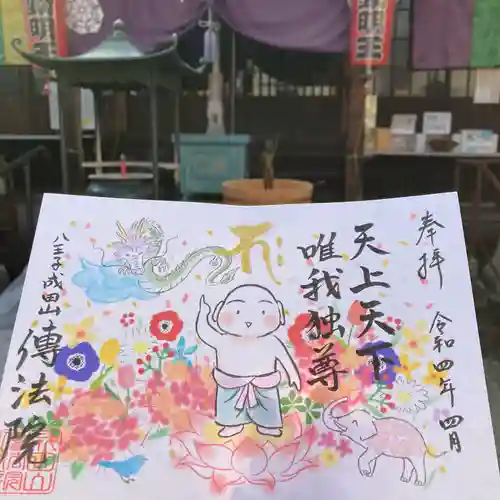 奉拝
令和四年四月
天上天下
唯我独尊
八王子成田山
傳法院
明王